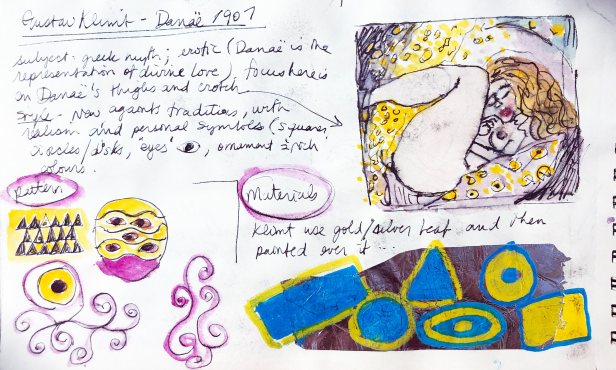 Gustav Klimt - Danaë 1907
subject - greek myth; erotic (Danaë is the
representation of divine love), focus here is
on Danaë's thighs and crotch
style - Now against traditions, with
realism and personal symbols (squares
circles/disks, 'eyes' , ornament rich
colours.
pattern
Materials
Klimt use gold/silver leaf and then
painted over it...